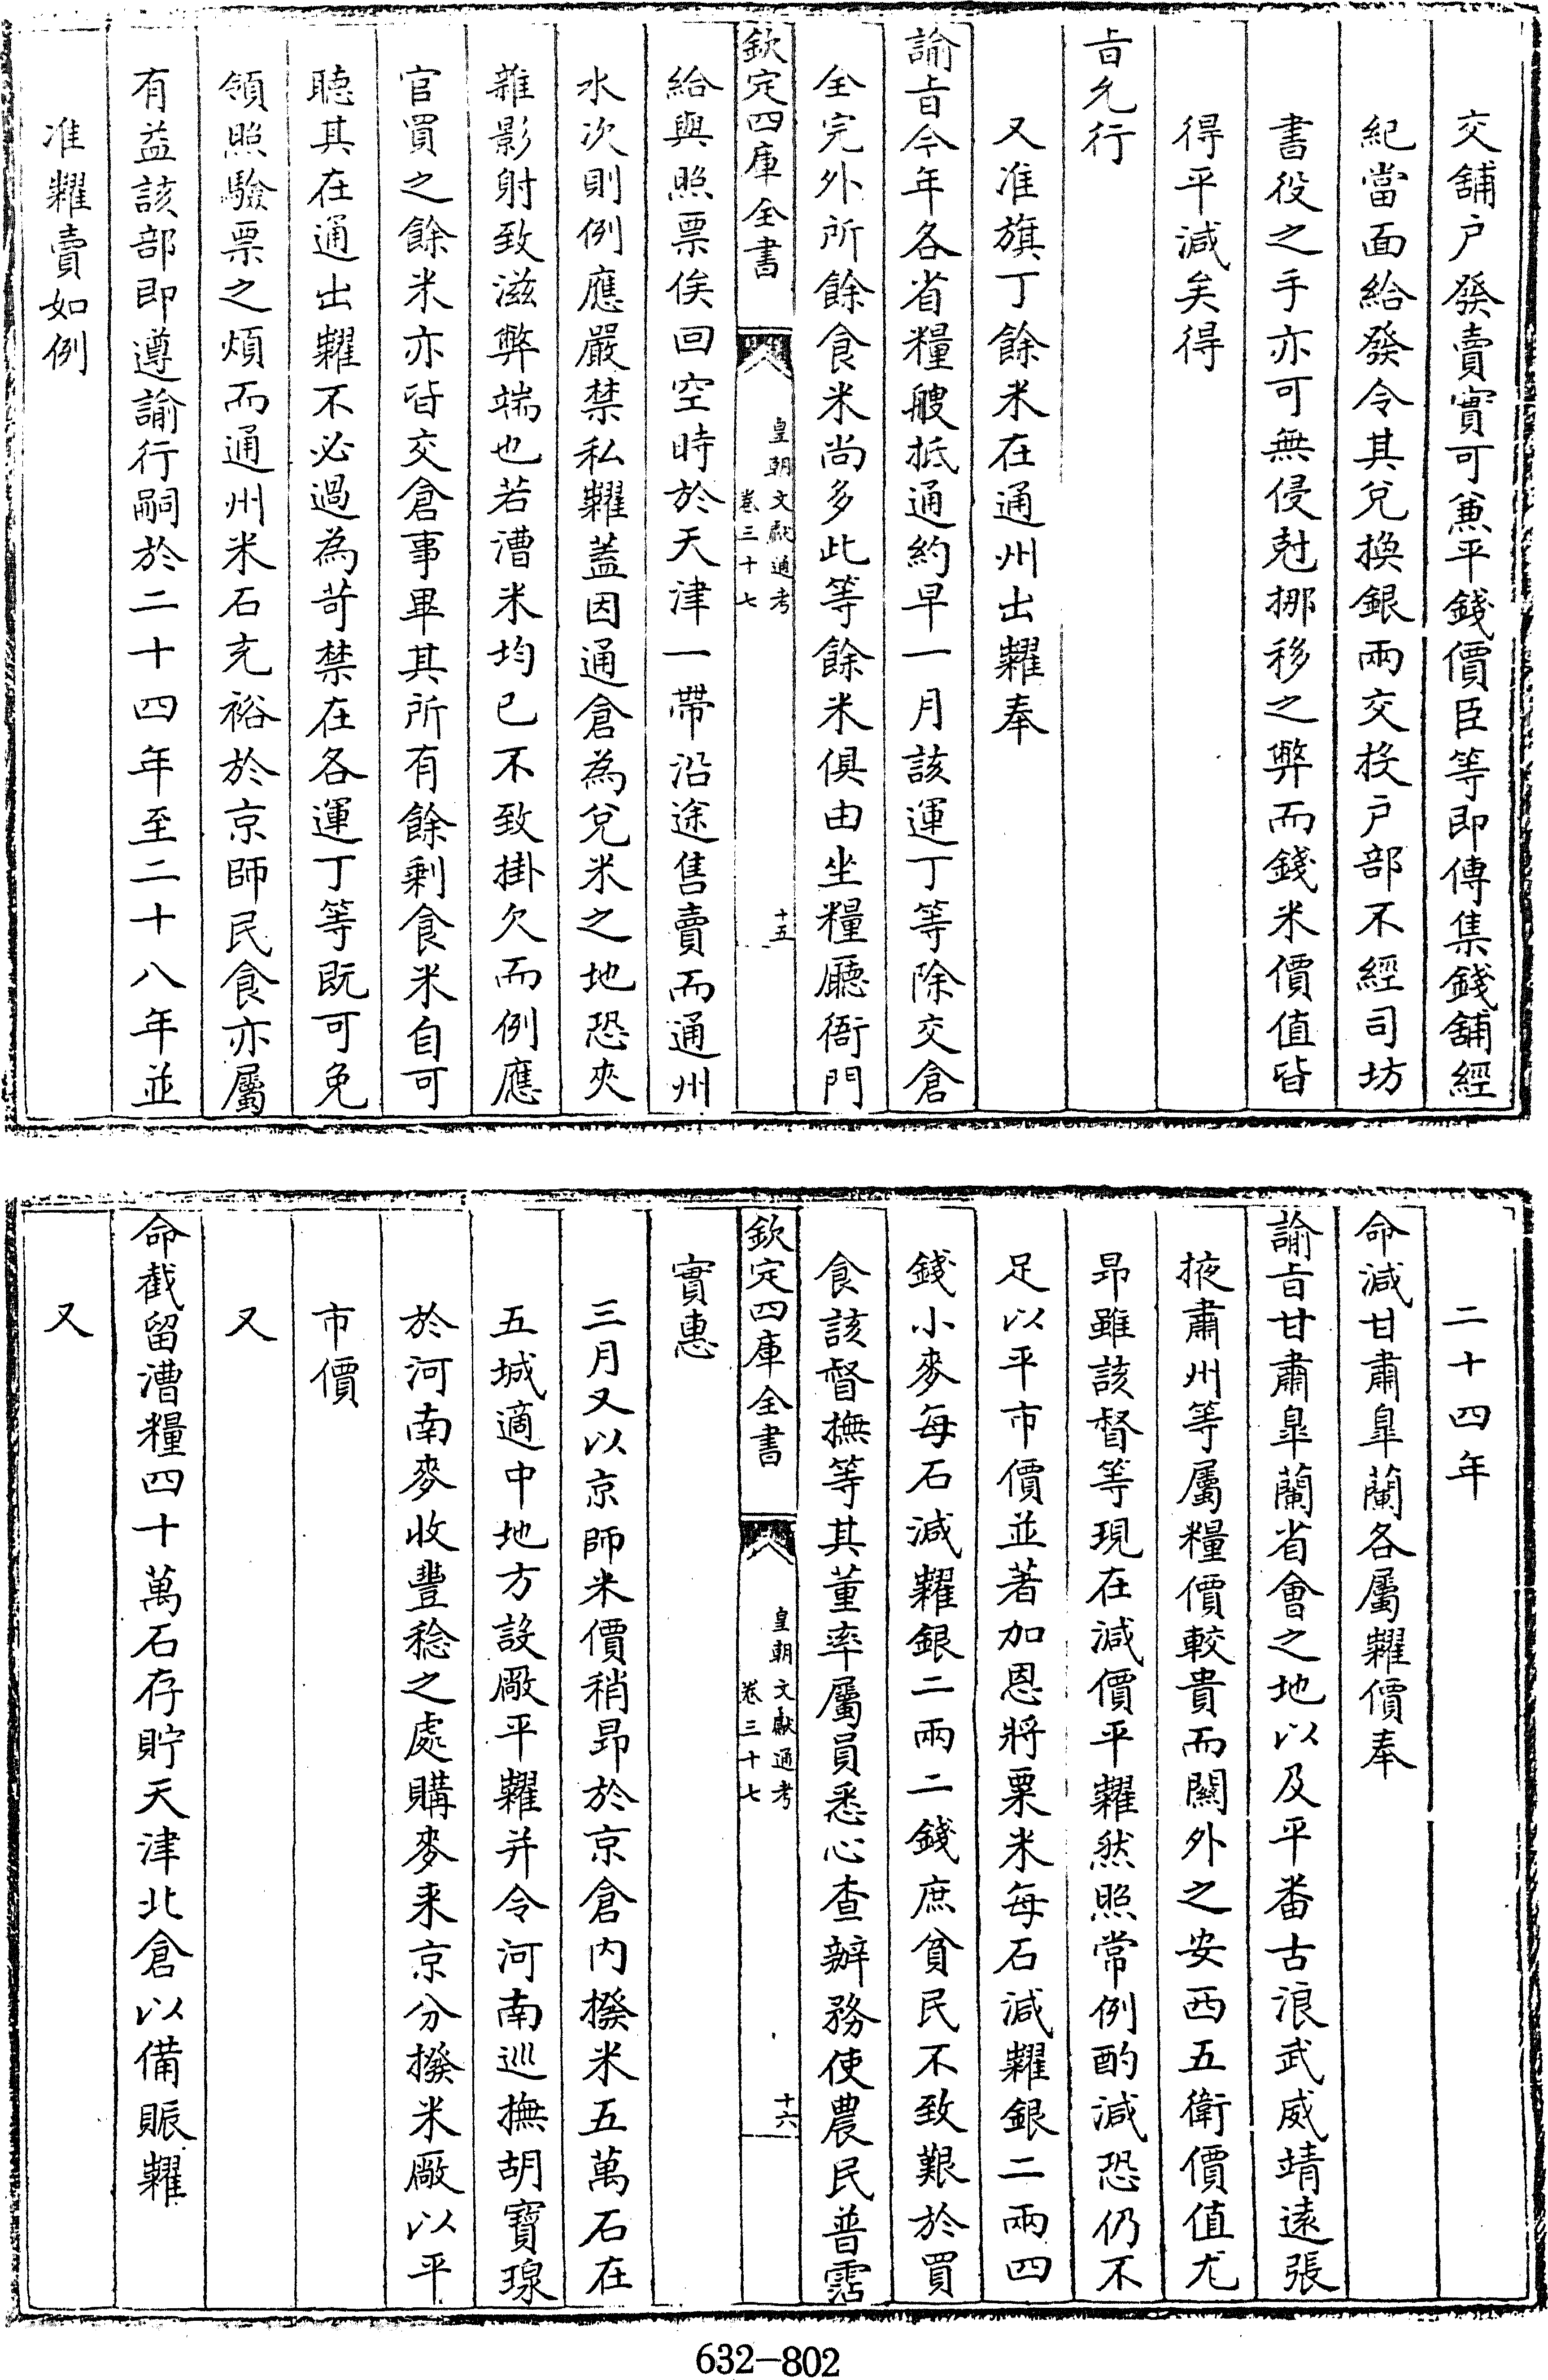 交舖户發賣實可兼平錢價臣等即傳集錢舖經
紀當面給發令其兌換銀兩交投户部不經司坊
書役之手亦可無侵尅挪移之弊而錢米價值皆
得平減矣得
㫖允行
又准旗丁餘米在通州出糶奉
諭㫖今年各省糧艘抵通約早一月該運丁等除交倉
全完外所餘食米尚多此等餘米俱由坐糧廳衙門
欽定四庫全書
皇朝文獻通考
卷三十七
十五
給與照票俟回空時於天津一帶沿途售賣而通州
水次則例應嚴禁私糶蓋因通倉為兌米之地恐夾
雜影射致滋弊端也若漕米均已不致掛欠而例應
官買之餘米亦皆交倉事畢其所有餘剩食米自可
聽其在通出糶不必過為苛禁在各運丁等既可免
領照驗票之煩而通州米石充裕於京師民食亦屬
有益該部即遵諭行嗣於二十四年至二十八年並
准糶賣如例
二十四年
命減甘肅臯蘭各屬糶價奉
諭㫖甘肅臯蘭省會之地以及平番古浪武威靖遠張
掖肅州等屬糧價較貴而闗外之安西五衛價值尤
昂雖該督等現在減價平糶然照常例酌減恐仍不
足以平市價並著加恩將粟米每石減糶銀二兩四
錢小麥每石減糶銀二兩二錢庶貧民不致艱於買
食該督撫等其董率屬員悉心查辦務使農民普霑
欽定四庫全書
皇朝文獻通考
卷三十七
十六
實惠
三月又以京師米價稍昂於京倉内撥米五萬石在
五城適中地方設厰平糶并令河南巡撫胡寶瑔
於河南麥收豐稔之處購麥来京分撥米厰以平
市價
又
命截留漕糧四十萬石存貯天津北倉以備賑糶
又
632-802